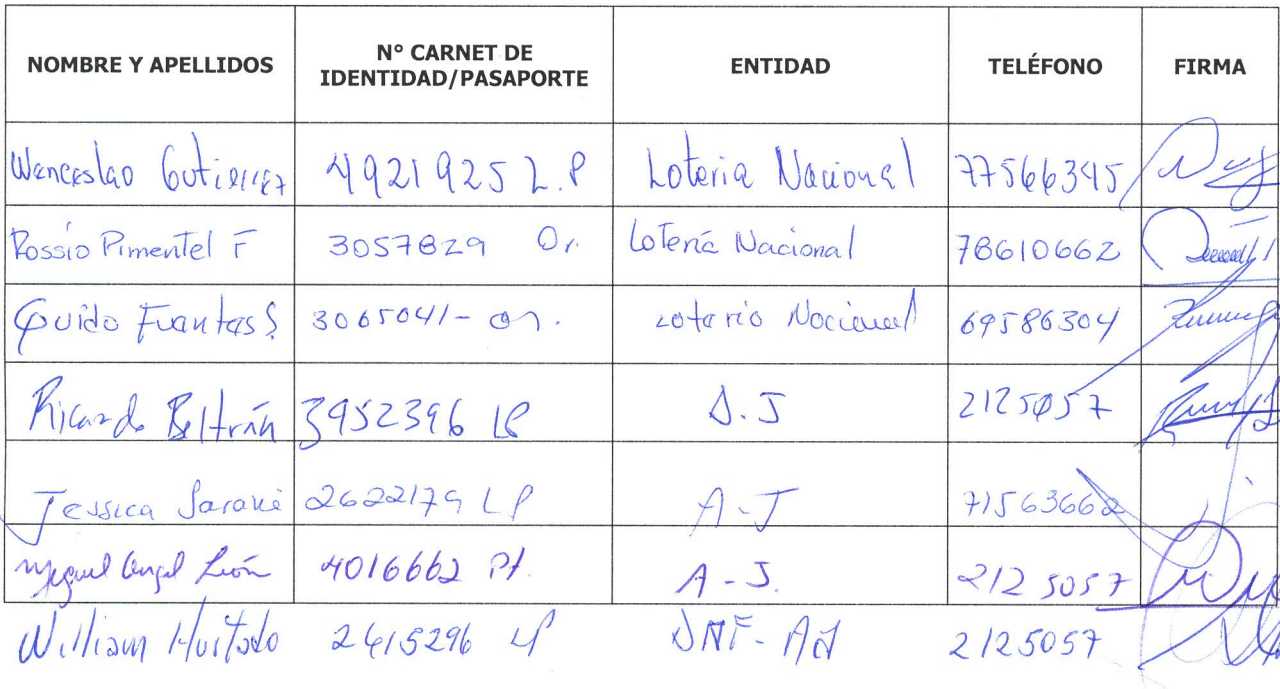 NOMBRE Y APELLIDOS N° CARNET DE IDENTIDAD/PASAPORTE ENTIDAD TELÉFONO FIRMA
Wenceslao Gutierrez 4921925 L.P Loteria Nacional 77566345
Rossio Pimentel F 3057829 Or. Lotería Nacional 78610662
Guido Fuentes S 3065041- Or. Loteria Nacional 69586304
Ricardo Beltrán 3952396 LP A.J 2125057
Jessica Saravia 2622179 LP A-J 71563662
Miguel Angel León 4016662 Pt. A-J. 2125057
William Hurtado 2415296 LP DNF-AJ 2125057